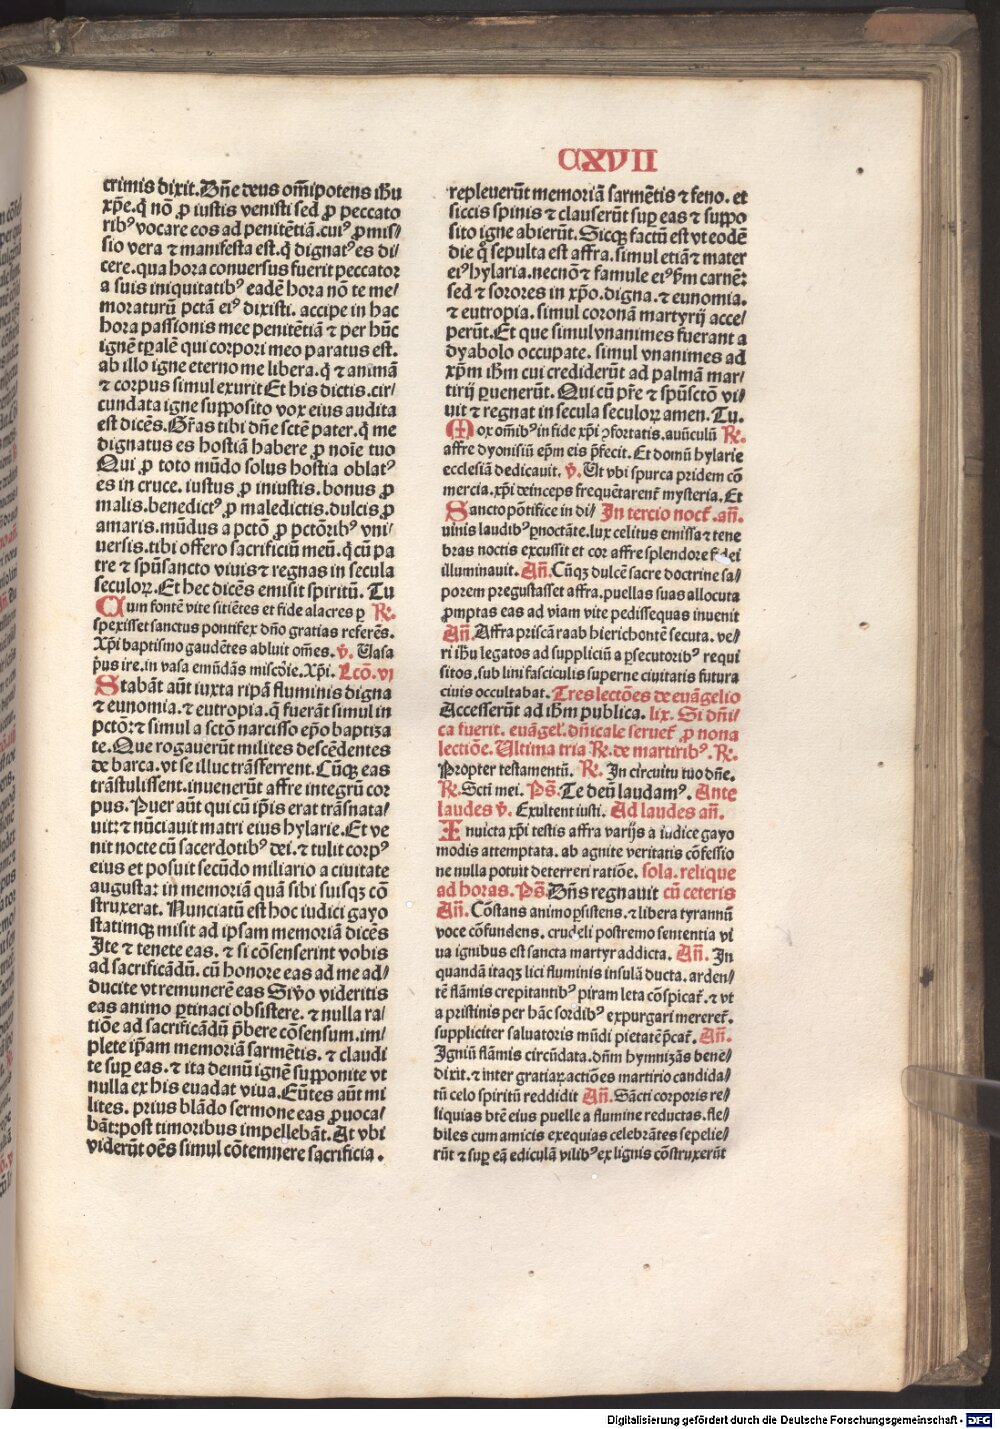 CXVII
crimis dixit. Dñe deus om̃ipotens ihu
xp̃e. q̃ nõ ꝓ iustis venisti sed ꝓ peccato
ribꝰ vocare eos ad penitẽtiã. cuiꝰ ꝓmis/
sio vera ⁊ manifesta est. q̃ dignatꝰ es di
cere. qua hora conuersus fuerit peccator
a suis iniquitatibꝰ eadẽ hora nõ te me/
moraturũ pctã eiꝰ dixisti. accipe in hac
hora passionis mee penitẽtiã ⁊ per hũc
ignẽ tp̃alẽ qui corpori meo paratus est.
ab illo igne eterno me libera. q̃ ⁊ animã
⁊ corpus simul exurit Et his dictis. cir/
cundata igne supposito vox eius audita
est dicẽs. Gr̃as tibi dñe sctẽ pater. q̃ me
dignatus es hostiã habere ꝓ noĩe tuo
Qui ꝓ toto mũdo solus hostia oblatꝰ
es in cruce. iustus ꝓ iniustis. bonus ꝓ
malis. benedictꝰ ꝓ maledictis. dulcis ꝓ
amaris. mũdus a pctõ ꝓ pctõribꝰ vni/
uersis. tibi offero sacrificiũ meũ. q̃ cũ pa
tre ⁊ spũsancto viuis ⁊ regnas in secula
seculoꝝ. Et hec dicẽs emisit spiritũ. Tu
Cum fontẽ vite sitiẽtes et fide alacres ꝑ ℟.
spexisset sanctus pontifex dño gratias referẽs.
Xp̃i baptismo gaudẽtes abluit om̃es. ℣. Uasa
p̃us ire. in vasa emũdãs miscõie. Xp̃i. Lcõ. vi
Stabãt aũt iuxta ripã fluminis digna
⁊ eunomia. ⁊ eutropia. q̃ fuerãt simul in
pctõ: ⁊ simul a sctõ narcisso ep̃o baptiza
te. Que rogauerũt milites descẽdentes
de barca. vt se illuc trãsferrent. Cũqꝫ eas
trãstulissent. inuenerũt affre integrũ cor
pus. Puer aũt qui cũ ip̃is erat trãsnata/
uit: ⁊ nũciauit matri eius hylarie. Et ve
nit nocte cũ sacerdotibꝰ dei. ⁊ tulit corpꝰ
eius et posuit secũdo miliario a ciuitate
augusta: in memoriã quã sibi suisqꝫ cõ
struxerat. Nunciatũ est hoc iudici gayo
statimqꝫ misit ad ipsam memoriã dicẽs
Ite ⁊ tenete eas. ⁊ si cõsenserint vobis
ad sacrificãdũ. cũ honore eas ad me ad/
ducite vt remunerẽ eas Siṽo videritis
eas animo ꝑtinaci obsistere. ⁊ nulla ra/
tiõe ad sacrificãdũ p̃bere cõsensum. im/
plete ip̃am memoriã sarmẽtis. ⁊ claudi
te suꝑ eas. ⁊ ita demũ ignẽ supponite vt
nulla ex his euadat viua. Eũtes aũt mi
lites. prius blãdo sermone eas ꝓuoca/
bãt: post timoribus impellebãt. At vbi
viderũt oẽs simul cõtemnere sacrificia.
repleuerũt memoriã sarmẽtis ⁊ feno. et
siccis spinis ⁊ clauserũt suꝑ eas ⁊ suppo
sito igne abierũt. Sicqꝫ factũ est vt eodẽ
die q̃ sepulta est affra. simul etiã ⁊ mater
eiꝰ hylaria. necnõ ⁊ famule eiꝰ ẽm carnẽ:
sed ⁊ sorores in xp̃o. digna. ⁊ eunomia.
⁊ eutropia. simul coronã martyrij acce/
perũt. Et que simul vnanimes fuerant a
dyabolo occupate. simul vnanimes ad
xp̃m ihm̃ cui crediderũt ad palmã mar/
tirij ꝑuenerũt. Qui cũ pr̃e ⁊ spũsctõ vi/
uit ⁊ regnat in secula seculoꝝ amen. Tu.
Mox om̃ibꝰ in fide xp̃i ꝯfortatis. auũculũ ℟.
affre dyonisiũ ep̃m eis p̃fecit. Et domũ hylarie
ecclesiã dedicauit. ℣. Ut vbi spurca pridem cõ
mercia. xp̃i deinceps frequẽtarent̃ mysteria. Et
Sancto põtifice in di/ In tercio noct̃. añ.
uinis laudibꝰ ꝑnoctãte. lux celitus emissa ⁊ tene
bras noctis excussit et cor affre splendore fidei
illuminauit. Añ. Cũqꝫ dulcẽ sacre doctrine sa/
porem pregustasset affra. puellas suas allocuta
ꝓmptas eas ad viam vite pedissequas inuenit
Añ. Affra priscã raab hierichontẽ secuta. ve/
ri ihu legatos ad suppliciũ a ꝑsecutoribꝰ requi
sitos. sub lini fasciculis superne ciuitatis futura
ciuis occultabat. Tres lectões de euãgelio
Accesserũt ad ihm̃ publica. lix. Si dñi/
ca fuerit. euãgel̃. dñicale seruet̃ ꝓ nona
lectiõe. Ultima tria ℟. de martiribꝰ. ℟.
Propter testamentũ. ℟. In circuitu tuo dñe.
℟. Scti mei. Ps̃. Te deũ laudamꝰ. Ante
laudes ℣. Exultent iusti. Ad laudes añ.
Inuicta xp̃i testis affra varijs a iudice gayo
modis attemptata. ab agnite veritatis cõfessio
ne nulla potuit deterreri ratiõe. sola. relique
ad horas. Ps̃. Dñs regnauit cũ ceteris
Añ. Cõstans animo ꝑsistens. ⁊ libera tyrannũ
voce cõfundens. crudeli postremo sententia vi
ua ignibus est sancta martyr addicta. Añ. In
quandã itaqꝫ lici fluminis insulã ducta. arden/
tẽ flãmis crepitantibꝰ piram leta cõspicat̃. ⁊ vt
a pristinis per hãc sordibꝰ expurgari mereret̃.
suppliciter saluatoris mũdi pietatẽ p̃cat̃. Añ.
Igniũ flãmis circũdata. dñm hymnizãs bene/
dixit. ⁊ inter gratiaꝝ actiões martirio candida/
tũ celo spiritũ reddidit Añ. Sãcti corporis re/
liquias btẽ eius puelle a flumine reductas. fle/
biles cum amicis exequias celebrãtes sepelie/
rũt ⁊ suꝑ eã ediculã vilibꝰ ex lignis cõstruxerũt
Digitalisierung gefördert durch die Deutsche Forschungsgemeinschaft - DFG